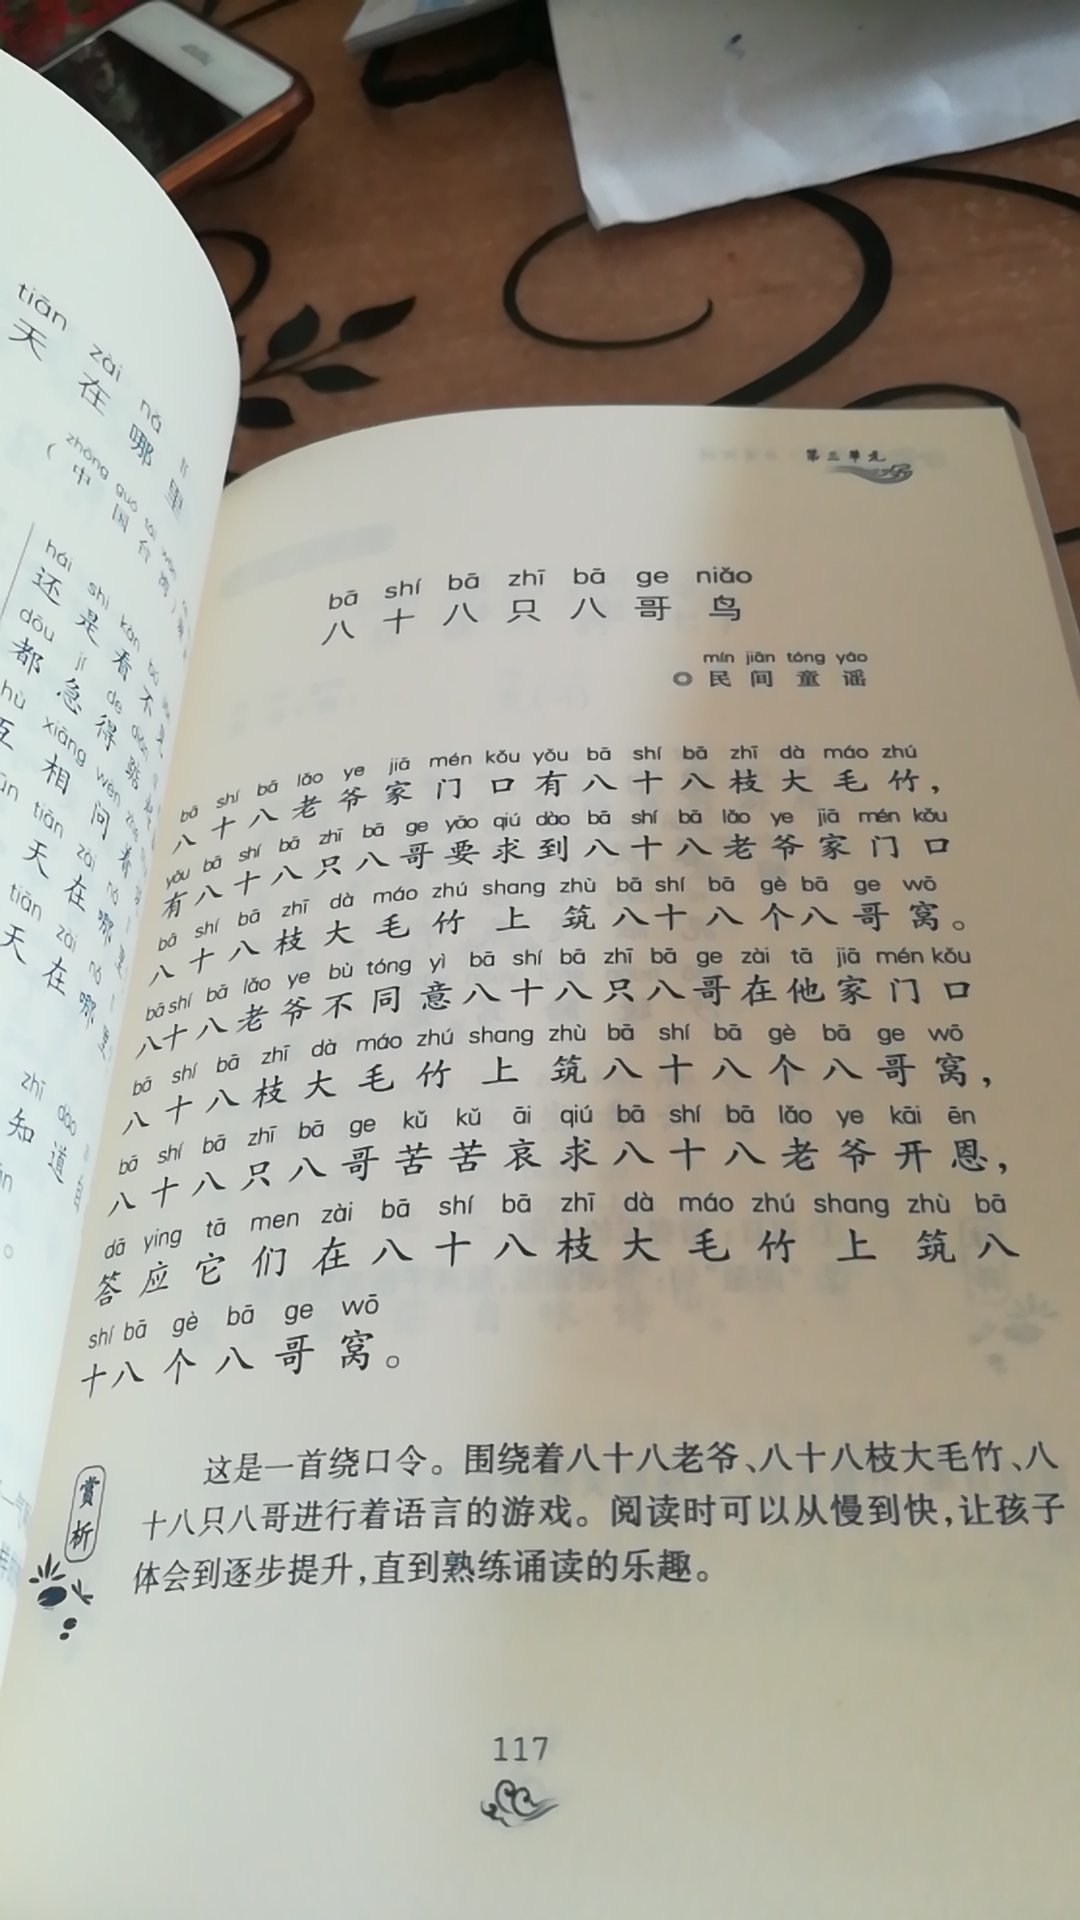 tiān zài nǎ
天在哪里
zhōng guó tái wān
(中国台湾
hái shi kàn bú
还是看不
dōu jí de
都急得
xiāng wèn
互相问着
tiān zài nǎ
天在哪里
tiān zài nǎ
天在哪里
zhī dào
知道自
第三单元
bā shí bā zhī bā ge niǎo
八十八只八哥鸟
mín jiān tóng yáo
民间童谣
bā shí bā lǎo ye jiā mén kǒu yǒu bā shí bā zhī dà máo zhú
八十八老爷家门口有八十八枝大毛竹,
yǒu bā shí bā zhī bā ge yāo qiú dào bā shí bā lǎo ye jiā mén kǒu
有八十八只八哥要求到八十八老爷家门口
bā shí bā zhī dà máo zhú shang zhù bā shí bā gè bā ge wō
八十八枝大毛竹上筑八十八个八哥窝。
bā shí bā lǎo ye bù tóng yì bā shí bā zhī bā ge zài tā jiā mén kǒu
八十八老爷不同意八十八只八哥在他家门口
bā shí bā zhī dà máo zhú shang zhù bā shí bā gè bā ge wō
八十八枝大毛竹上筑八十八个八哥窝,
bā shí bā zhī bā ge kǔ kǔ āi qiú bā shí bā lǎo ye kāi ēn
八十八只八哥苦苦哀求八十八老爷开恩,
dā ying tā men zài bā shí bā zhī dà máo zhú shang zhù bā
答应它们在八十八枝大毛竹上筑八
shí bā gè bā ge wō
十八个八哥窝。
赏析
这是一首绕口令。围绕着八十八老爷、八十八枝大毛竹、八
十八只八哥进行着语言的游戏。阅读时可以从慢到快,让孩子
体会到逐步提升,直到熟练诵读的乐趣。
117